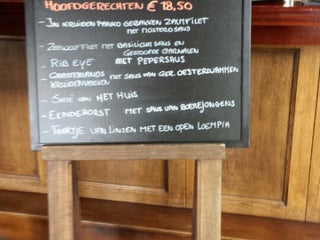 HOOFDGERECHTEN € 18,50
- IN KRUIDEN PANKO GEBAKKEN ZALMFILET
MET MOSTERDSAUS
- ZEEWOLF FILET MET BASILICUM SAUS EN
GESTOOFDE GARNALEN
- RIB EYE MET PEPERSAUS
- GAASTERLANDS MET SAUS VAN GER. OESTERZWAMMEN
- SATÉ VAN HET HUIS
- EENDEBORST MET SAUS VAN BOERENJONGENS
- TAARTJE VAN LINZEN MET EEN OPEN LOEMPIA